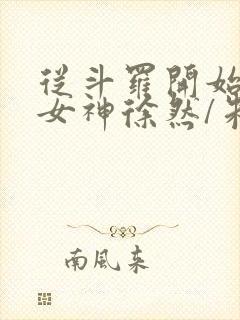 從斗羅開始
女神徐然/朱
南風来